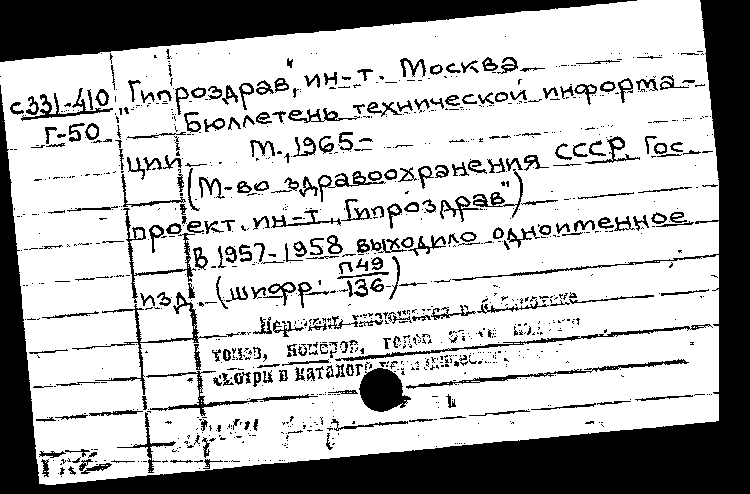 с331-410
Г-50
„Гипроздрав", ин-т. Москва.
Бюллетень технической информа-
ции. М., 1965-
(М-во здравоохранения СССР. Гос.
проект. ин-т „Гипроздрав")
В 1957-1958 выходило одноименное
изд. (шифр: П49
136)
Перечень имеющихся в библиотеке
томов, номеров, годов
смотри в каталоге